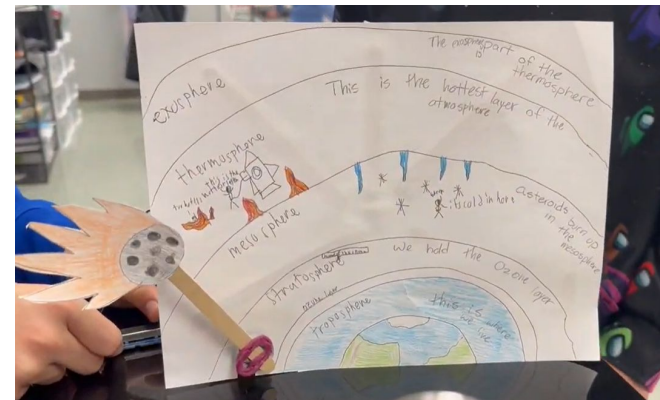 exosphere
The part
is of the
thermosphere
This is the hottest layer of the
atmosphere
thermosphere
This is the
mesosphere
is cold in here
asteroids burn up
in the
mesosphere
stratosphere
We hold the Ozone layer
troposphere
this is where
we live